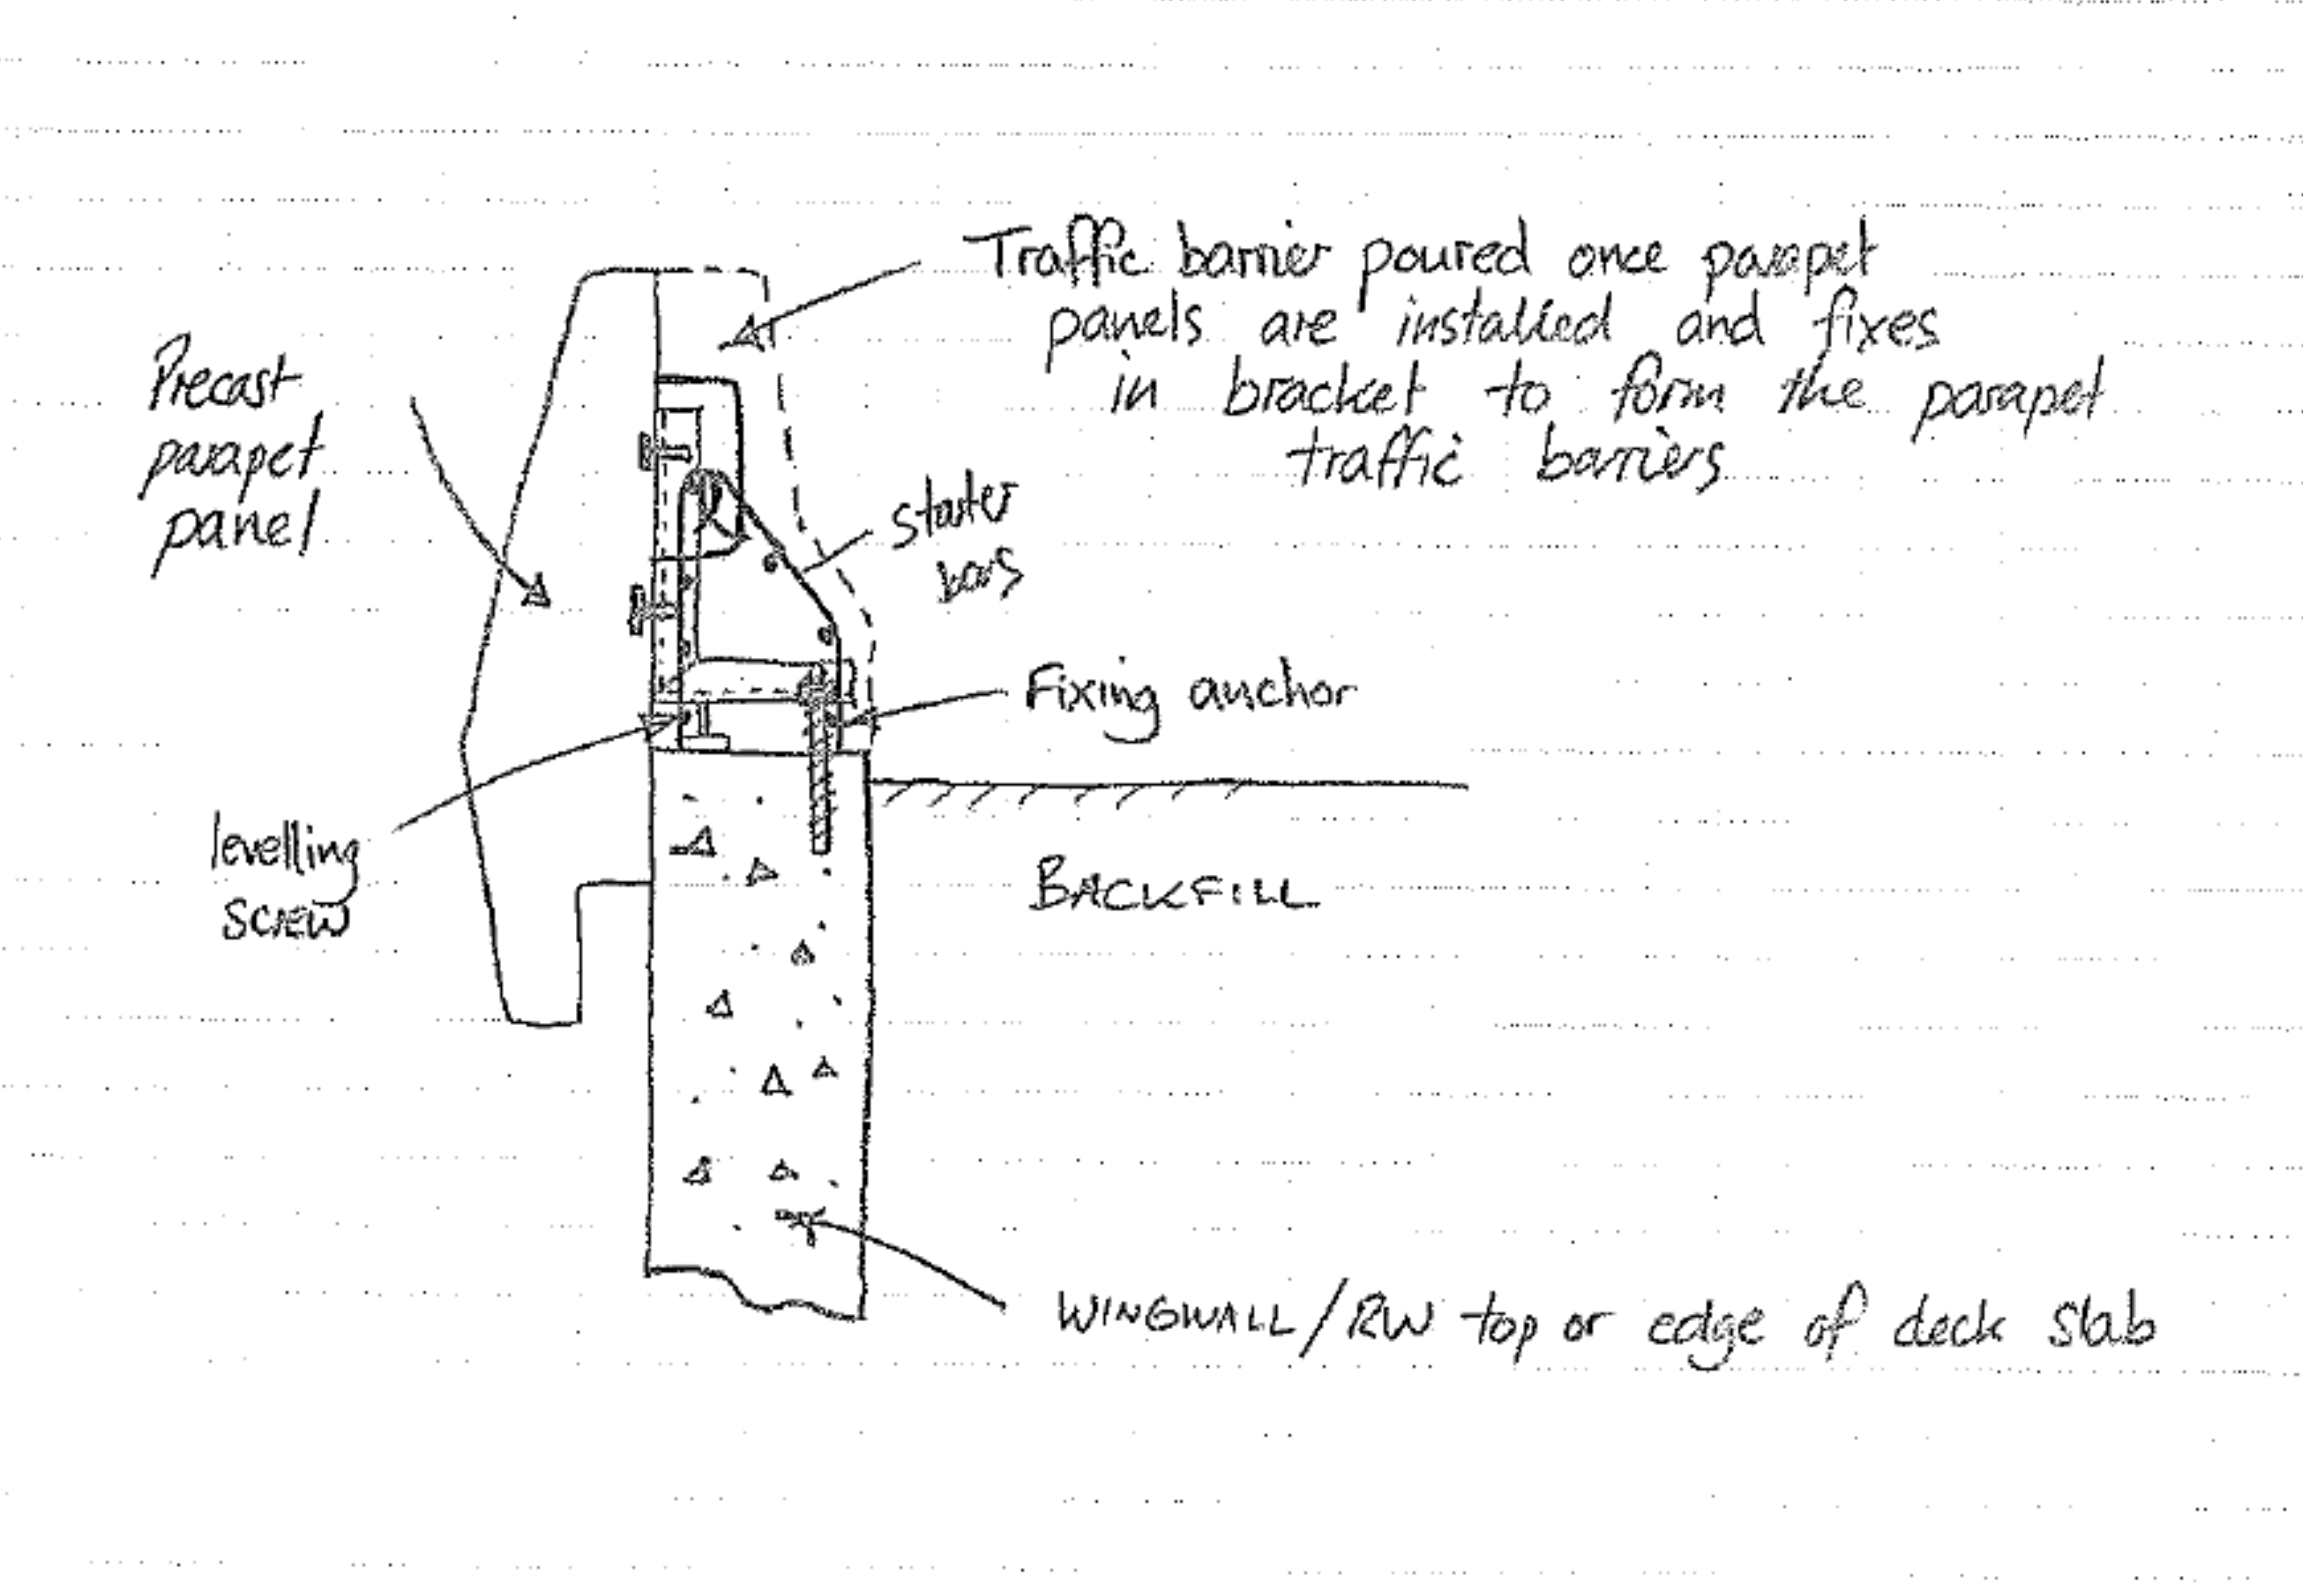 Traffic barrier poured once parapet
panels are installed and fixes
in bracket to form the parapet
traffic barriers
Precast
parapet
panel
starter
bars
Fixing anchor
levelling
screw
BACKFILL
WINGWALL/RW top or edge of deck slab